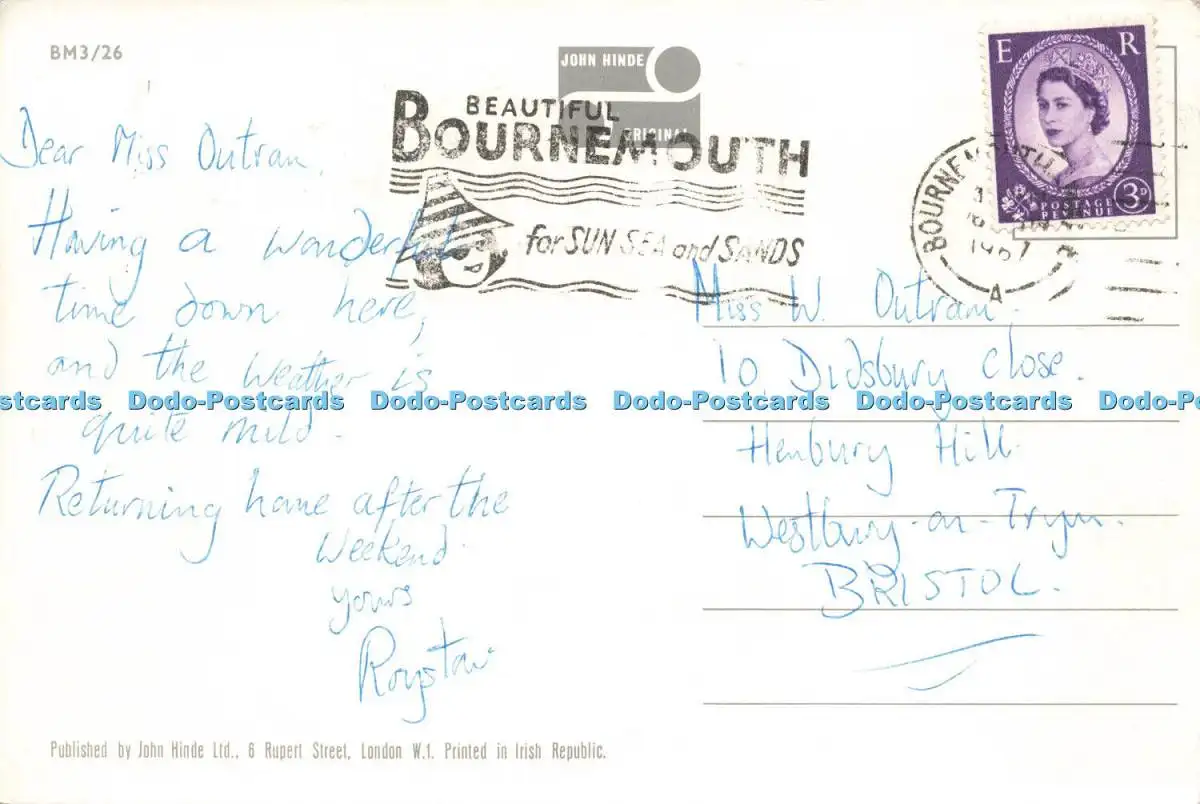 BM3/26
JOHN HINDE
ORIGINAL
BEAUTIFUL
BOURNEMOUTH
for SUN SEA and SANDS
E R
POSTAGE
REVENUE
3D
BOURNEMOUTH
1967
A
Dear Miss Outram,
Having a wonderful
time down here,
and the weather is
quite mild.
Returning home after the
weekend.
yours
Royston.
Miss W. Outram,
10 Didsbury Close.
Henbury Hill.
Westbury-on-Trym.
BRISTOL.
stcards Dodo-Postcards Dodo-Postcards Dodo-Postcards Dodo-Postcards Dodo-Po
Published by John Hinde Ltd., 6 Rupert Street, London W.1. Printed in Irish Republic.